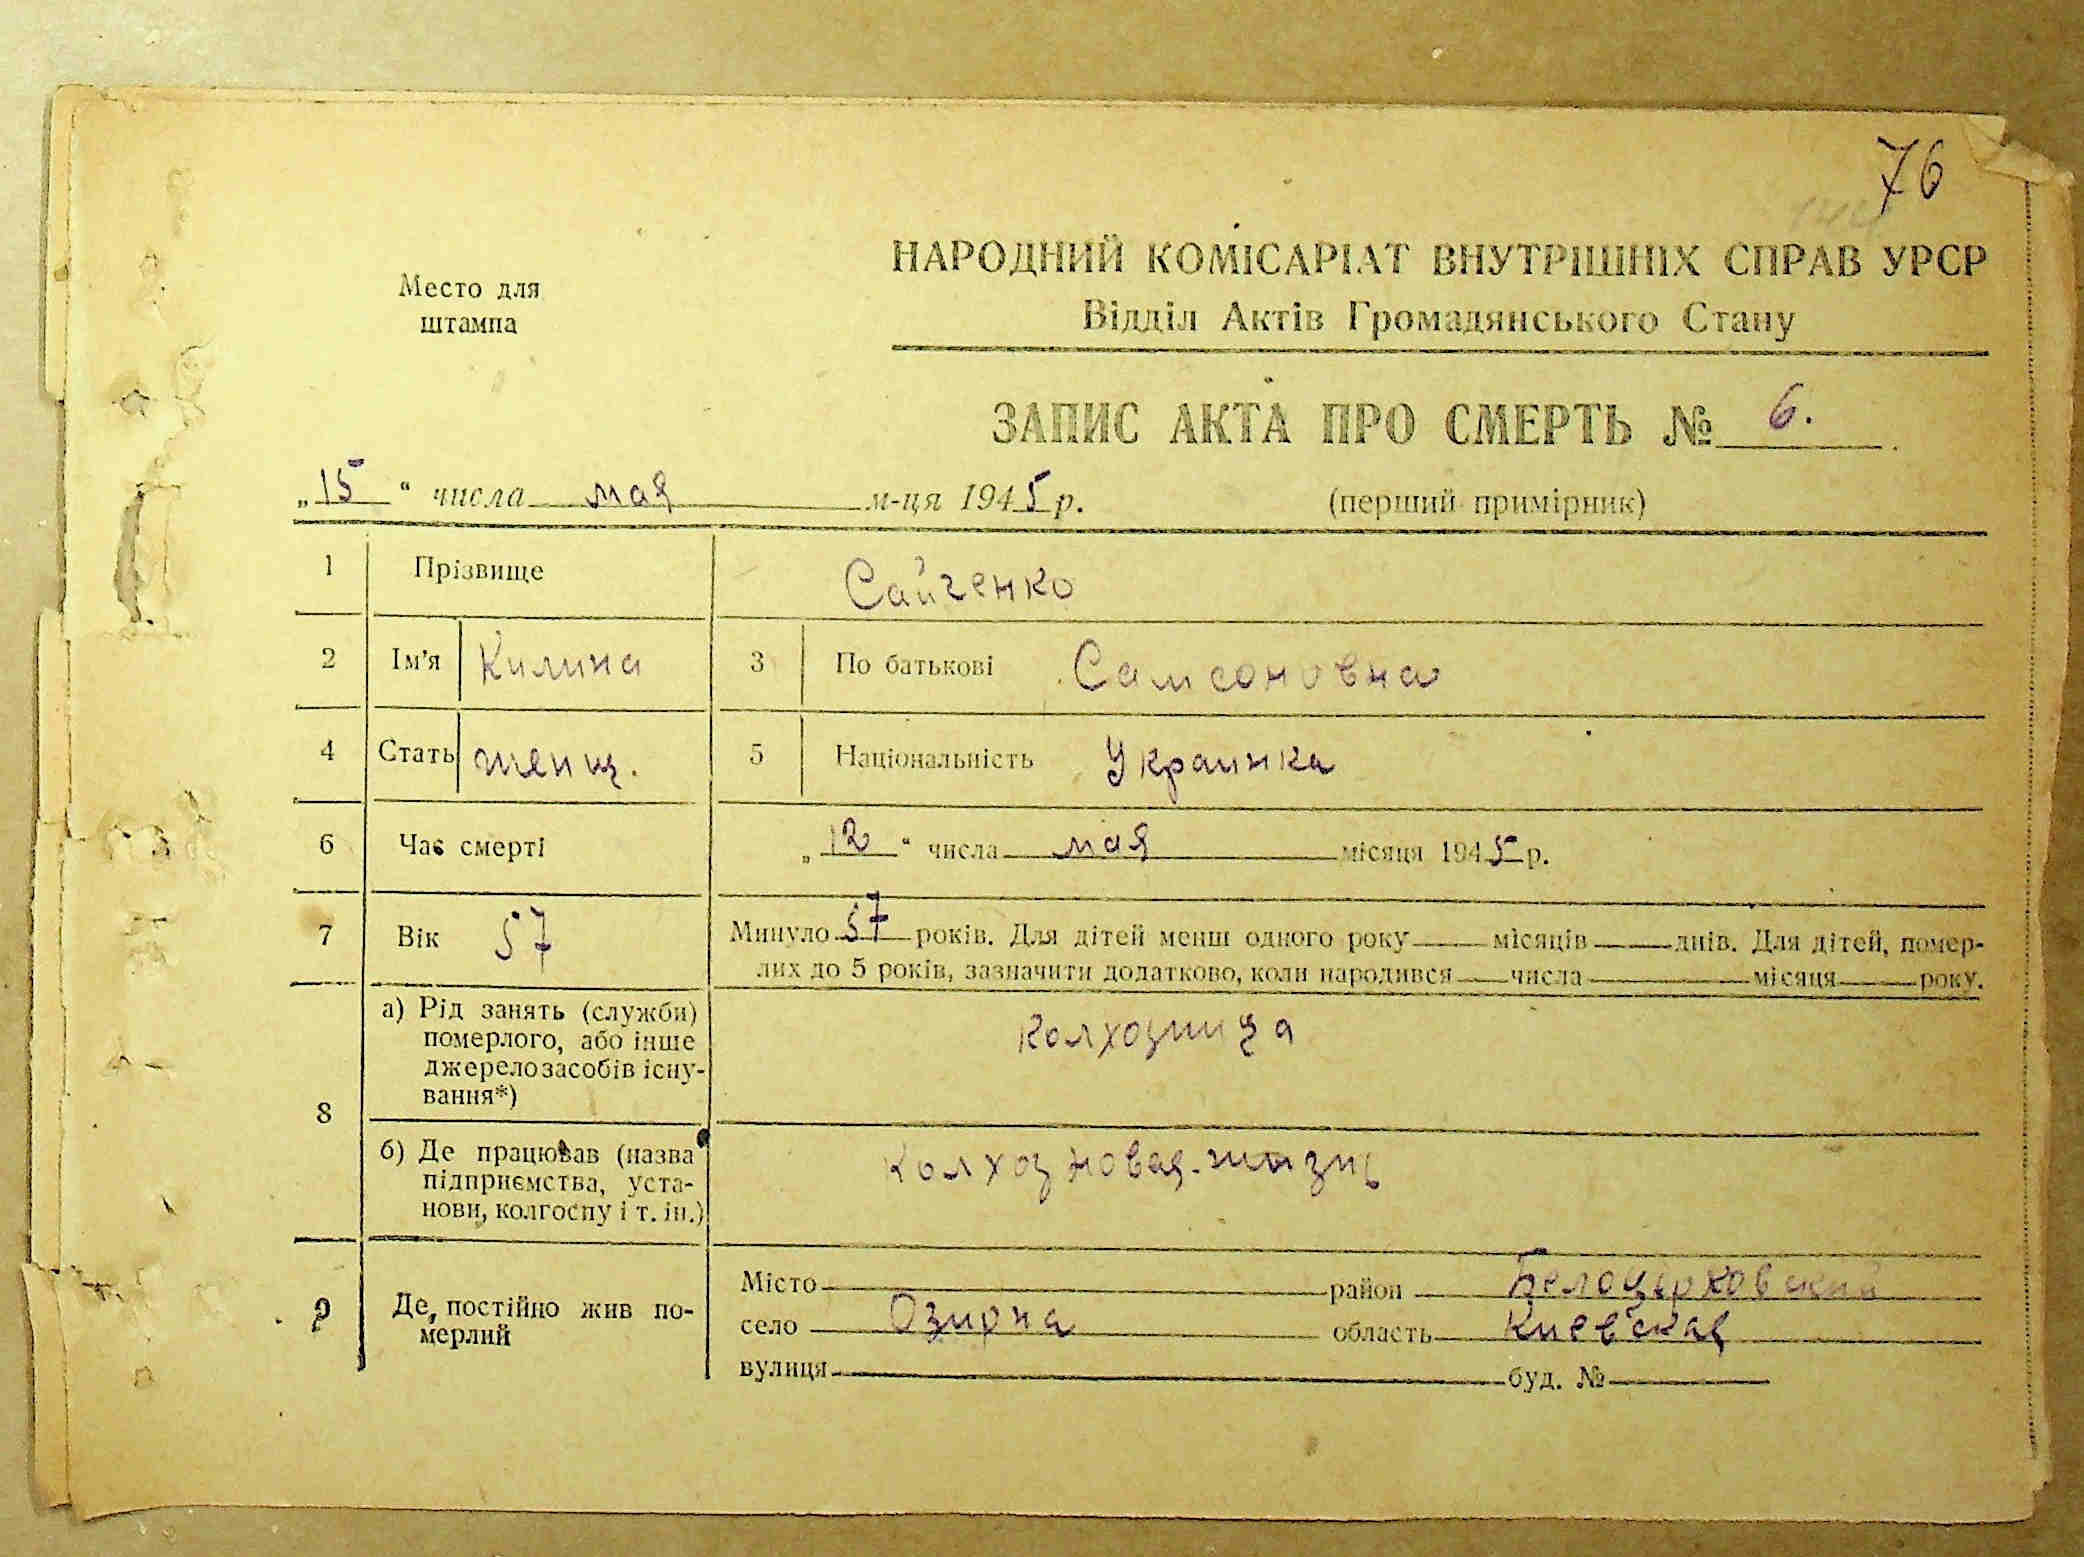 76
Место для
штампа
НАРОДНИЙ КОМІСАРІАТ ВНУТРІШНІХ СПРАВ УРСР
Відділ Актів Громадянського Стану
ЗАПИС АКТА ПРО СМЕРТЬ № 6.
„15“ числа мая м-ця 1945 р. (перший примірник)
1 Прізвище Сайченко
2 Ім'я Килина 3 По батькові Самсоновна
4 Стать женщ. 5 Національність Украинка
6 Час смерті „12“ числа мая місяця 1945 р.
7 Вік 57 Минуло 57 років. Для дітей менш одного року місяців днів. Для дітей, помер-
лих до 5 років, зазначити додатково, коли народився числа місяця року.
8 а) Рід занять (служби)
померлого, або інше
джерело засобів існу-
вання*)
Колхозница
б) Де працював (назва
підприємства, уста-
нови, колгоспу і т. ін.)
Колхоз новая-жизнь
9 Де постійно жив по-
мерлий
Місто район Белоцерковский
село Озирна область Киевская
вулиця буд. №